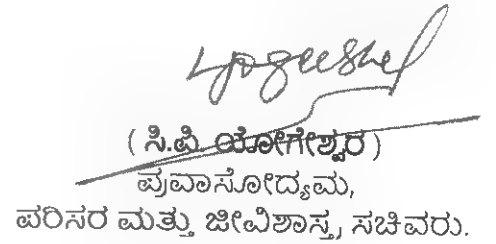 ( ಸಿ.ಪಿ. ಯೋಗೇಶ್ವರ )
ಪ್ರವಾಸೋದ್ಯಮ,
ಪರಿಸರ ಮತ್ತು ಜೀವಿಶಾಸ್ತ್ರ ಸಚಿವರು.